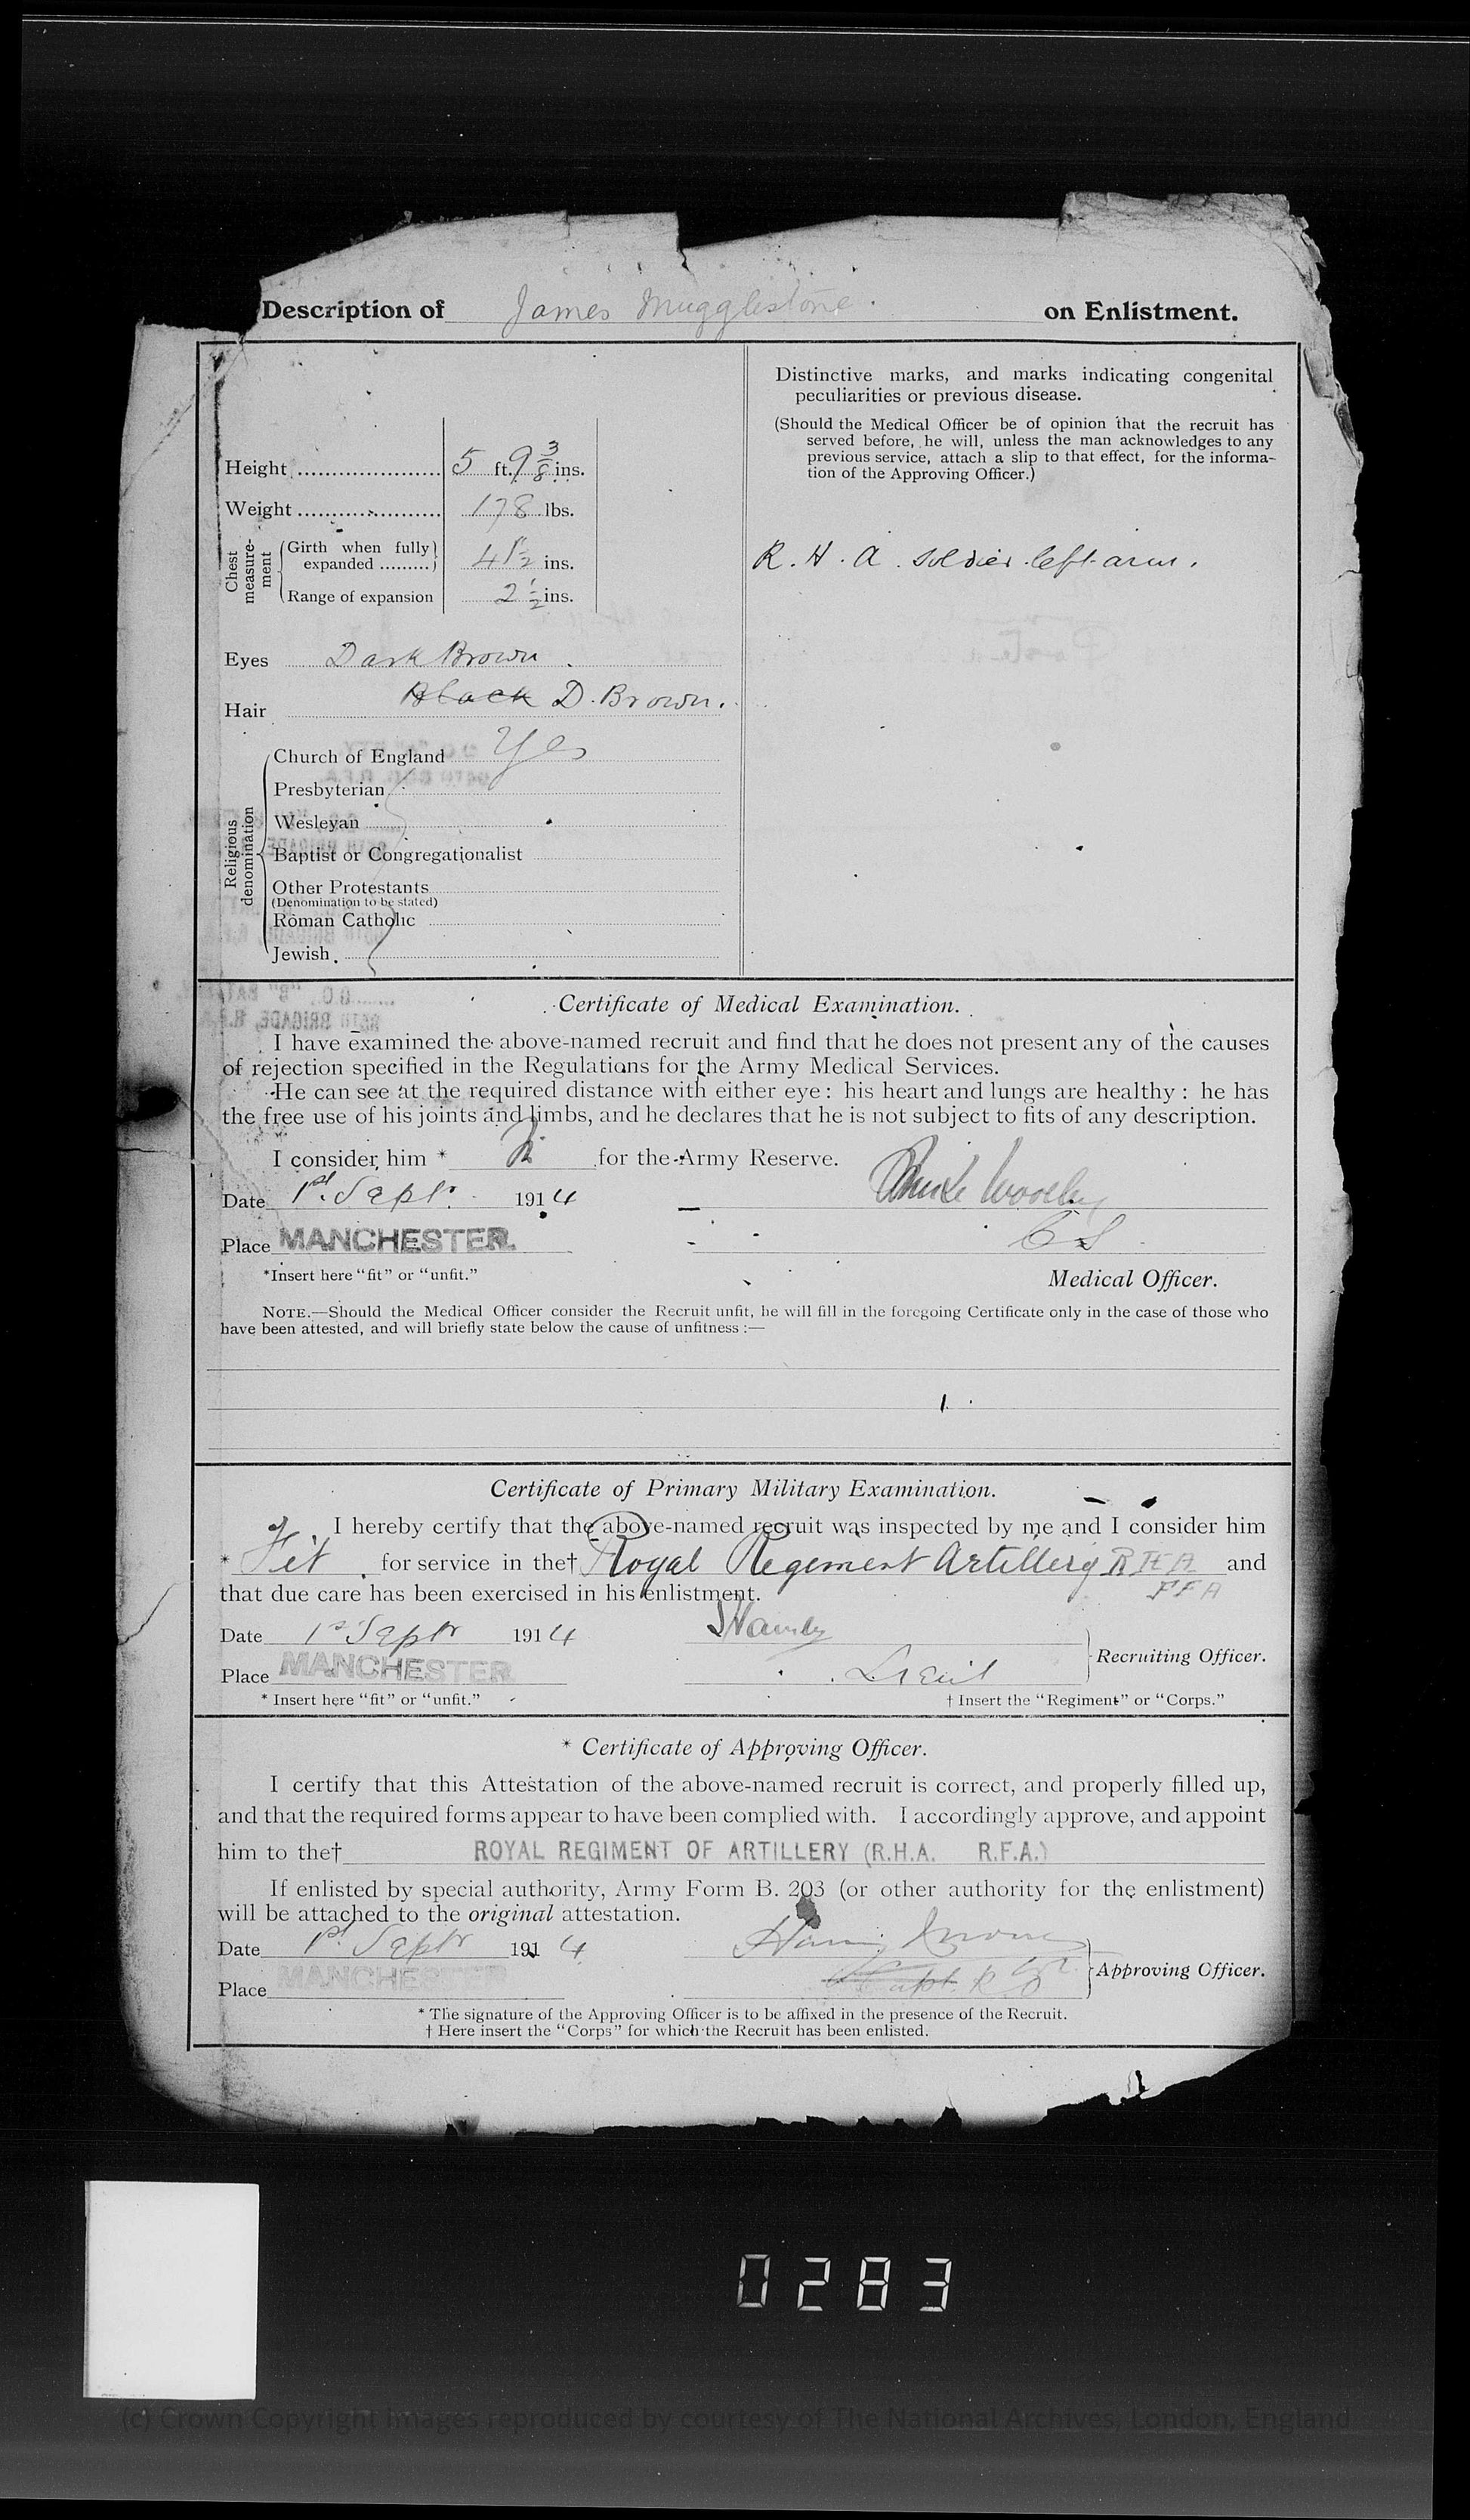 Description of James Mugglestone. on Enlistment.
Distinctive marks, and marks indicating congenital
peculiarities or previous disease.
(Should the Medical Officer be of opinion that the recruit has
served before, he will, unless the man acknowledges to any
previous service, attach a slip to that effect, for the informa-
tion of the Approving Officer.)
Height 5 ft. 9 3/8 ins.
Weight 178 lbs.
Chest measure-ment
Girth when fully
expanded 41 1/2 ins.
Range of expansion 2 1/2 ins.
R. H. A. soldier left arm.
Eyes Dark Brown.
Hair Black D. Brown.
Religious denomination
Church of England Yes
Presbyterian
Wesleyan
Baptist or Congregationalist
Other Protestants
(Denomination to be stated)
Roman Catholic
Jewish
Certificate of Medical Examination.
I have examined the above-named recruit and find that he does not present any of the causes
of rejection specified in the Regulations for the Army Medical Services.
He can see at the required distance with either eye: his heart and lungs are healthy: he has
the free use of his joints and limbs, and he declares that he is not subject to fits of any description.
I consider him * for the Army Reserve.
Date 1st Septr. 1914
Place MANCHESTER.
*Insert here "fit" or "unfit."
Medical Officer.
NOTE.—Should the Medical Officer consider the Recruit unfit, he will fill in the foregoing Certificate only in the case of those who
have been attested, and will briefly state below the cause of unfitness :—
Certificate of Primary Military Examination.
I hereby certify that the above-named recruit was inspected by me and I consider him
* Fit for service in the† Royal Regiment Artillery RHA and
RFA
that due care has been exercised in his enlistment.
Date 1st Septr 1914
Place MANCHESTER
Lieut
Recruiting Officer.
* Insert here "fit" or "unfit."
† Insert the "Regiment" or "Corps."
* Certificate of Approving Officer.
I certify that this Attestation of the above-named recruit is correct, and properly filled up,
and that the required forms appear to have been complied with. I accordingly approve, and appoint
him to the† ROYAL REGIMENT OF ARTILLERY (R.H.A. R.F.A.)
If enlisted by special authority, Army Form B. 203 (or other authority for the enlistment)
will be attached to the original attestation.
Date 1st Septr 1914
Place MANCHESTER
Approving Officer.
* The signature of the Approving Officer is to be affixed in the presence of the Recruit.
† Here insert the "Corps" for which the Recruit has been enlisted.
0283
(c) Crown Copyright Images reproduced by courtesy of The National Archives, London, England